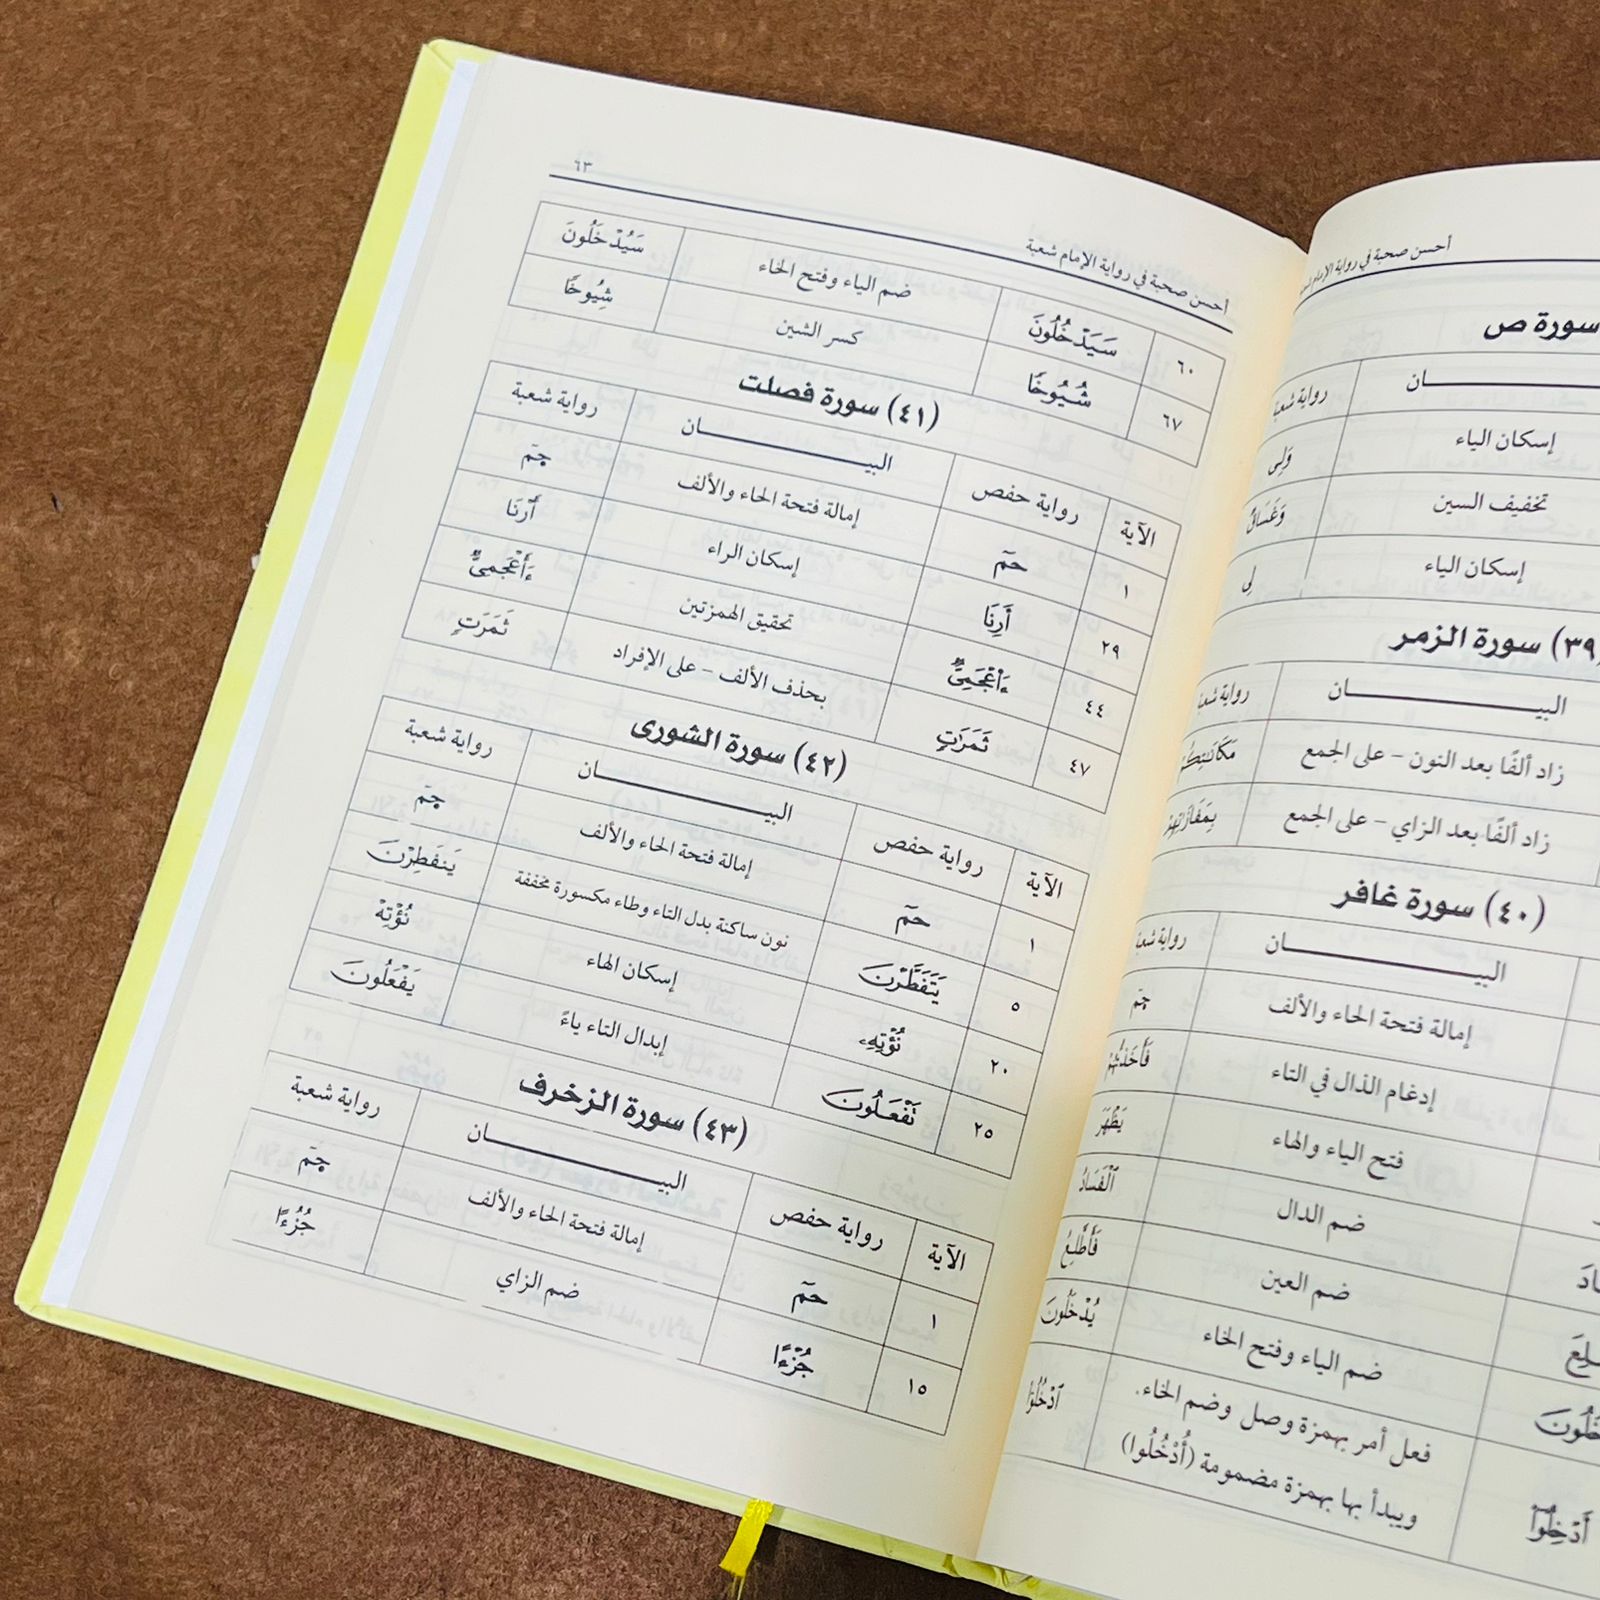 أحسن صحبة في رواية الإمام
سورة ص
البيـــــــــــان رواية شعبة
إسكان الياء وَلِى
تخفيف السين وَغَسَاقٌ
إسكان الياء لِى
(٣٩) سورة الزمر
البيـــــــــــان رواية شعبة
زاد ألفًا بعد النون – على الجمع
زاد ألفًا بعد الزاي – على الجمع
(٤٠) سورة غافر
البيـــــــــــان رواية شعبة
إمالة فتحة الحاء والألف حمٓ
إدغام الذال في التاء فَأَخَذتُّهُمْ
فتح الياء والهاء يَظْهَرَ
ضم الدال ٱلْفَسَادُ
ضم العين فَأَطَّلِعُ
ضم الياء وفتح الخاء يُدْخَلُونَ
أَدْخِلُوٓا۟ فعل أمر بهمزة وصل وضم الخاء. ٱدْخُلُوٓا۟
ويبدأ بها بهمزة مضمومة (أُدْخُلُوا)
أحسن صحبة في رواية الإمام شعبة ٦٣
٦٠ سَيَدْخُلُونَ ضم الياء وفتح الخاء سَيُدْخَلُونَ
٦٧ شُيُوخًا كسر الشين شِيُوخًا
(٤١) سورة فصلت
الآية رواية حفص البيـــــــــــان رواية شعبة
١ حمٓ إمالة فتحة الحاء والألف حمٓ
٢٩ أَرِنَا إسكان الراء أَرْنَا
٤٤ ءَا۬عْجَمِىٌّ تحقيق الهمزتين ءَأَعْجَمِىٌّ
٤٧ ثَمَرَٰتٍ بحذف الألف – على الإفراد ثَمَرَتٍ
(٤٢) سورة الشورى
الآية رواية حفص البيـــــــــــان رواية شعبة
١ حمٓ إمالة فتحة الحاء والألف حمٓ
٥ يَتَفَطَّرْنَ نون ساكنة بدل التاء وطاء مكسورة مخففة يَنفَطِرْنَ
٢٠ نُؤْتِهِۦ إسكان الهاء نُؤْتِهْ
٢٥ تَفْعَلُونَ إبدال التاء ياءً يَفْعَلُونَ
(٤٣) سورة الزخرف
الآية رواية حفص البيـــــــــــان رواية شعبة
١ حمٓ إمالة فتحة الحاء والألف حمٓ
١٥ جُزْءًا ضم الزاي جُزُءًا